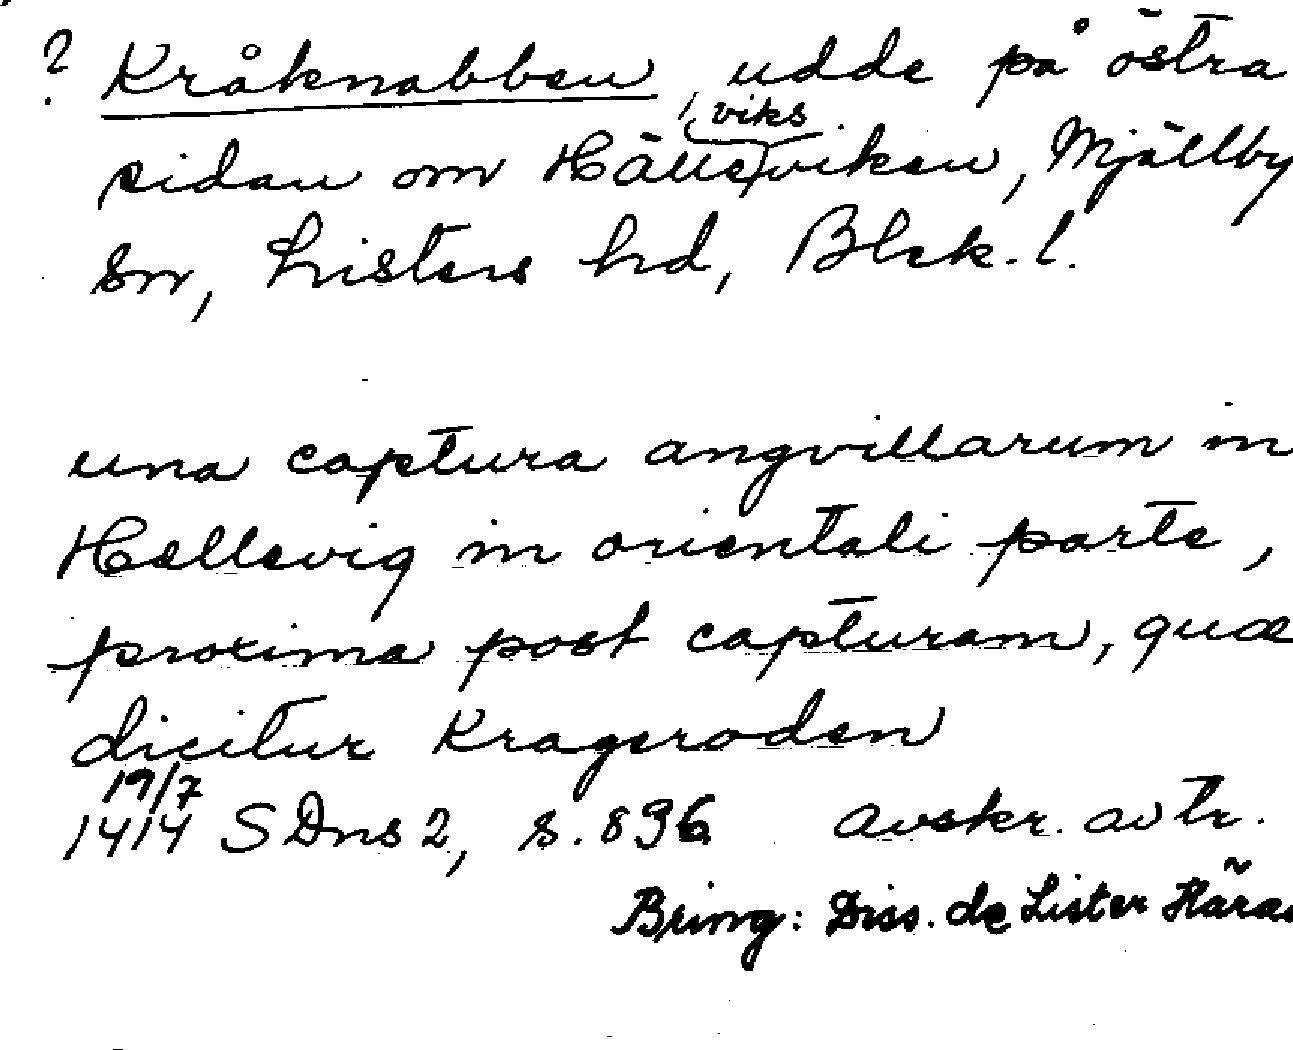 ? Kråknabben, udde på östra
viks
sidan om Hälleviken, Mjällby
sn, Listers hd, Blek. l.
una captura angvillarum in
Hellevig in orientali parte,
proxima post capturam, quæ
dicitur Krageroden
19/7
1414 SDns 2, s. 896 avskr. av tr.
Bring: Diss. de Lister Härad